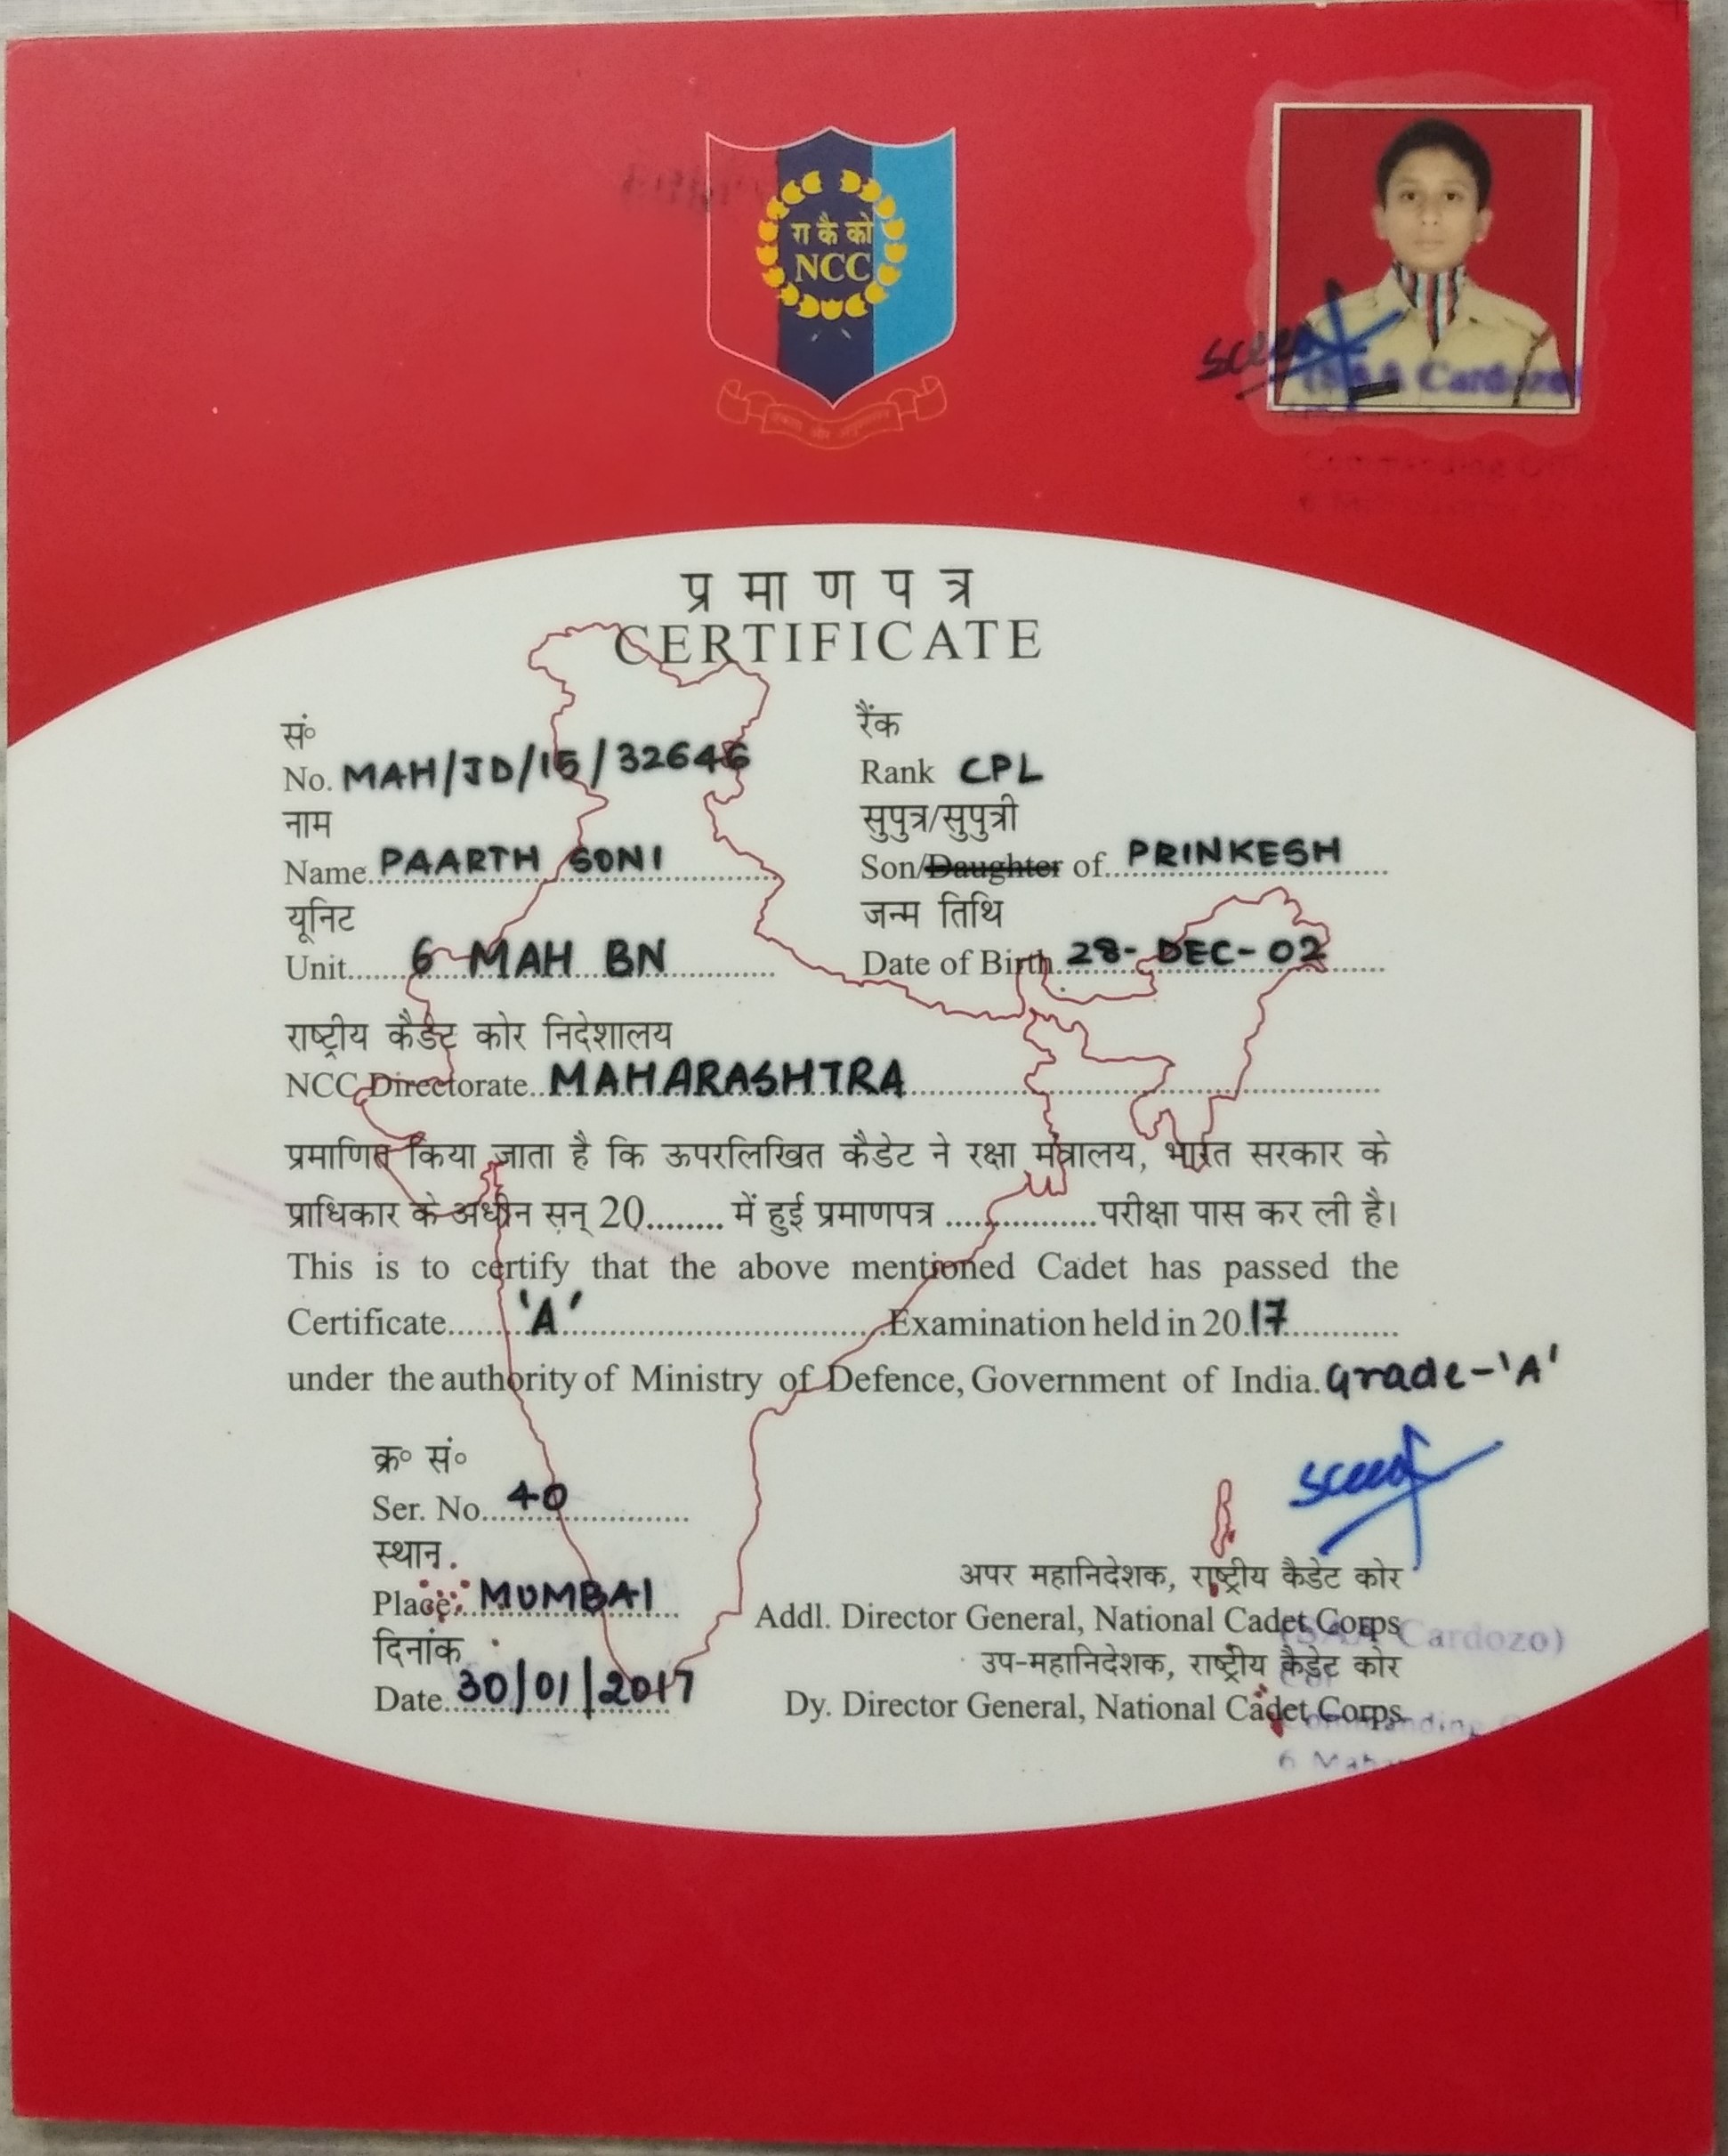 रा कै को
NCC
एकता और अनुशासन
(SAA Cardozo)
Commanding
प्रमाणपत्र
CERTIFICATE
सं०
No. MAH/JD/15/32646
रैंक
Rank CPL
नाम
Name PAARTH SONI
सुपुत्र/सुपुत्री
Son/Daughter of PRINKESH
यूनिट
Unit 6 MAH BN
जन्म तिथि
Date of Birth 28-DEC-02
राष्ट्रीय कैडेट कोर निदेशालय
NCC Directorate MAHARASHTRA
प्रमाणित किया जाता है कि ऊपरलिखित कैडेट ने रक्षा मंत्रालय, भारत सरकार के
प्राधिकार के अधीन सन् 20........ में हुई प्रमाणपत्र ...............परीक्षा पास कर ली है।
This is to certify that the above mentioned Cadet has passed the
Certificate 'A' Examination held in 2017
under the authority of Ministry of Defence, Government of India. Grade-'A'
क्र० सं०
Ser. No. 40
स्थान
Place MUMBAI
दिनांक
Date 30/01/2017
अपर महानिदेशक, राष्ट्रीय कैडेट कोर
Addl. Director General, National Cadet Corps
(SAA Cardozo)
उप-महानिदेशक, राष्ट्रीय कैडेट कोर
Col
Dy. Director General, National Cadet Corps
Commanding
6